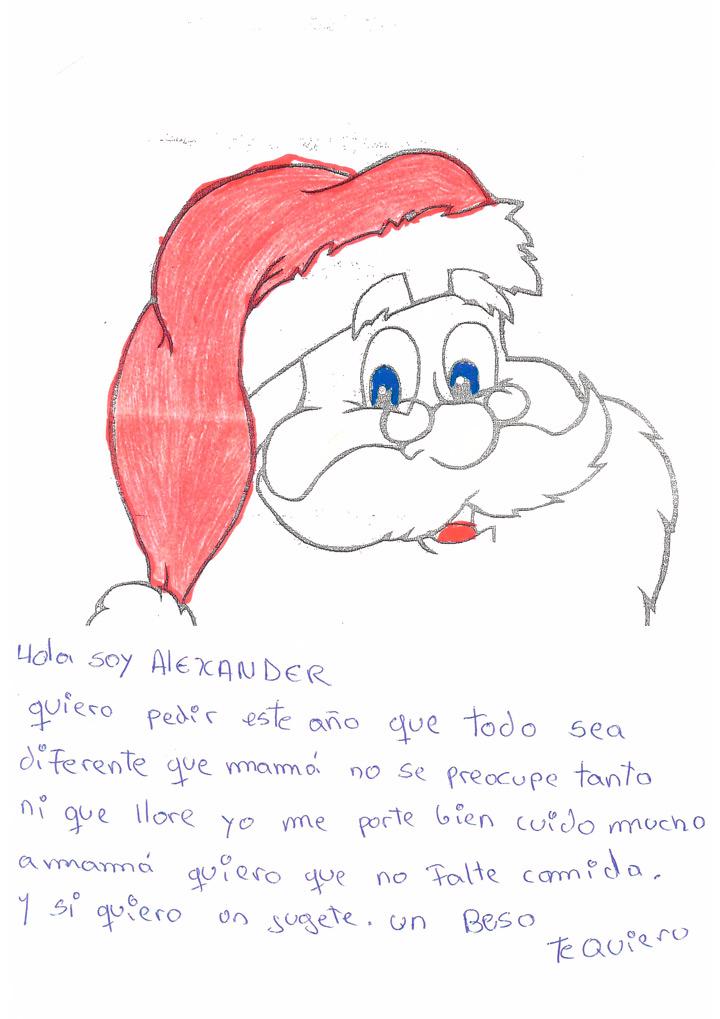 Hola soy ALEXANDER
quiero pedir este año que todo sea
diferente que mamá no se preocupe tanto
ni que llore yo me porte bien cuido mucho
a mamá quiero que no falte comida.
Y si quiero un sugete. un Beso
Te Quiero